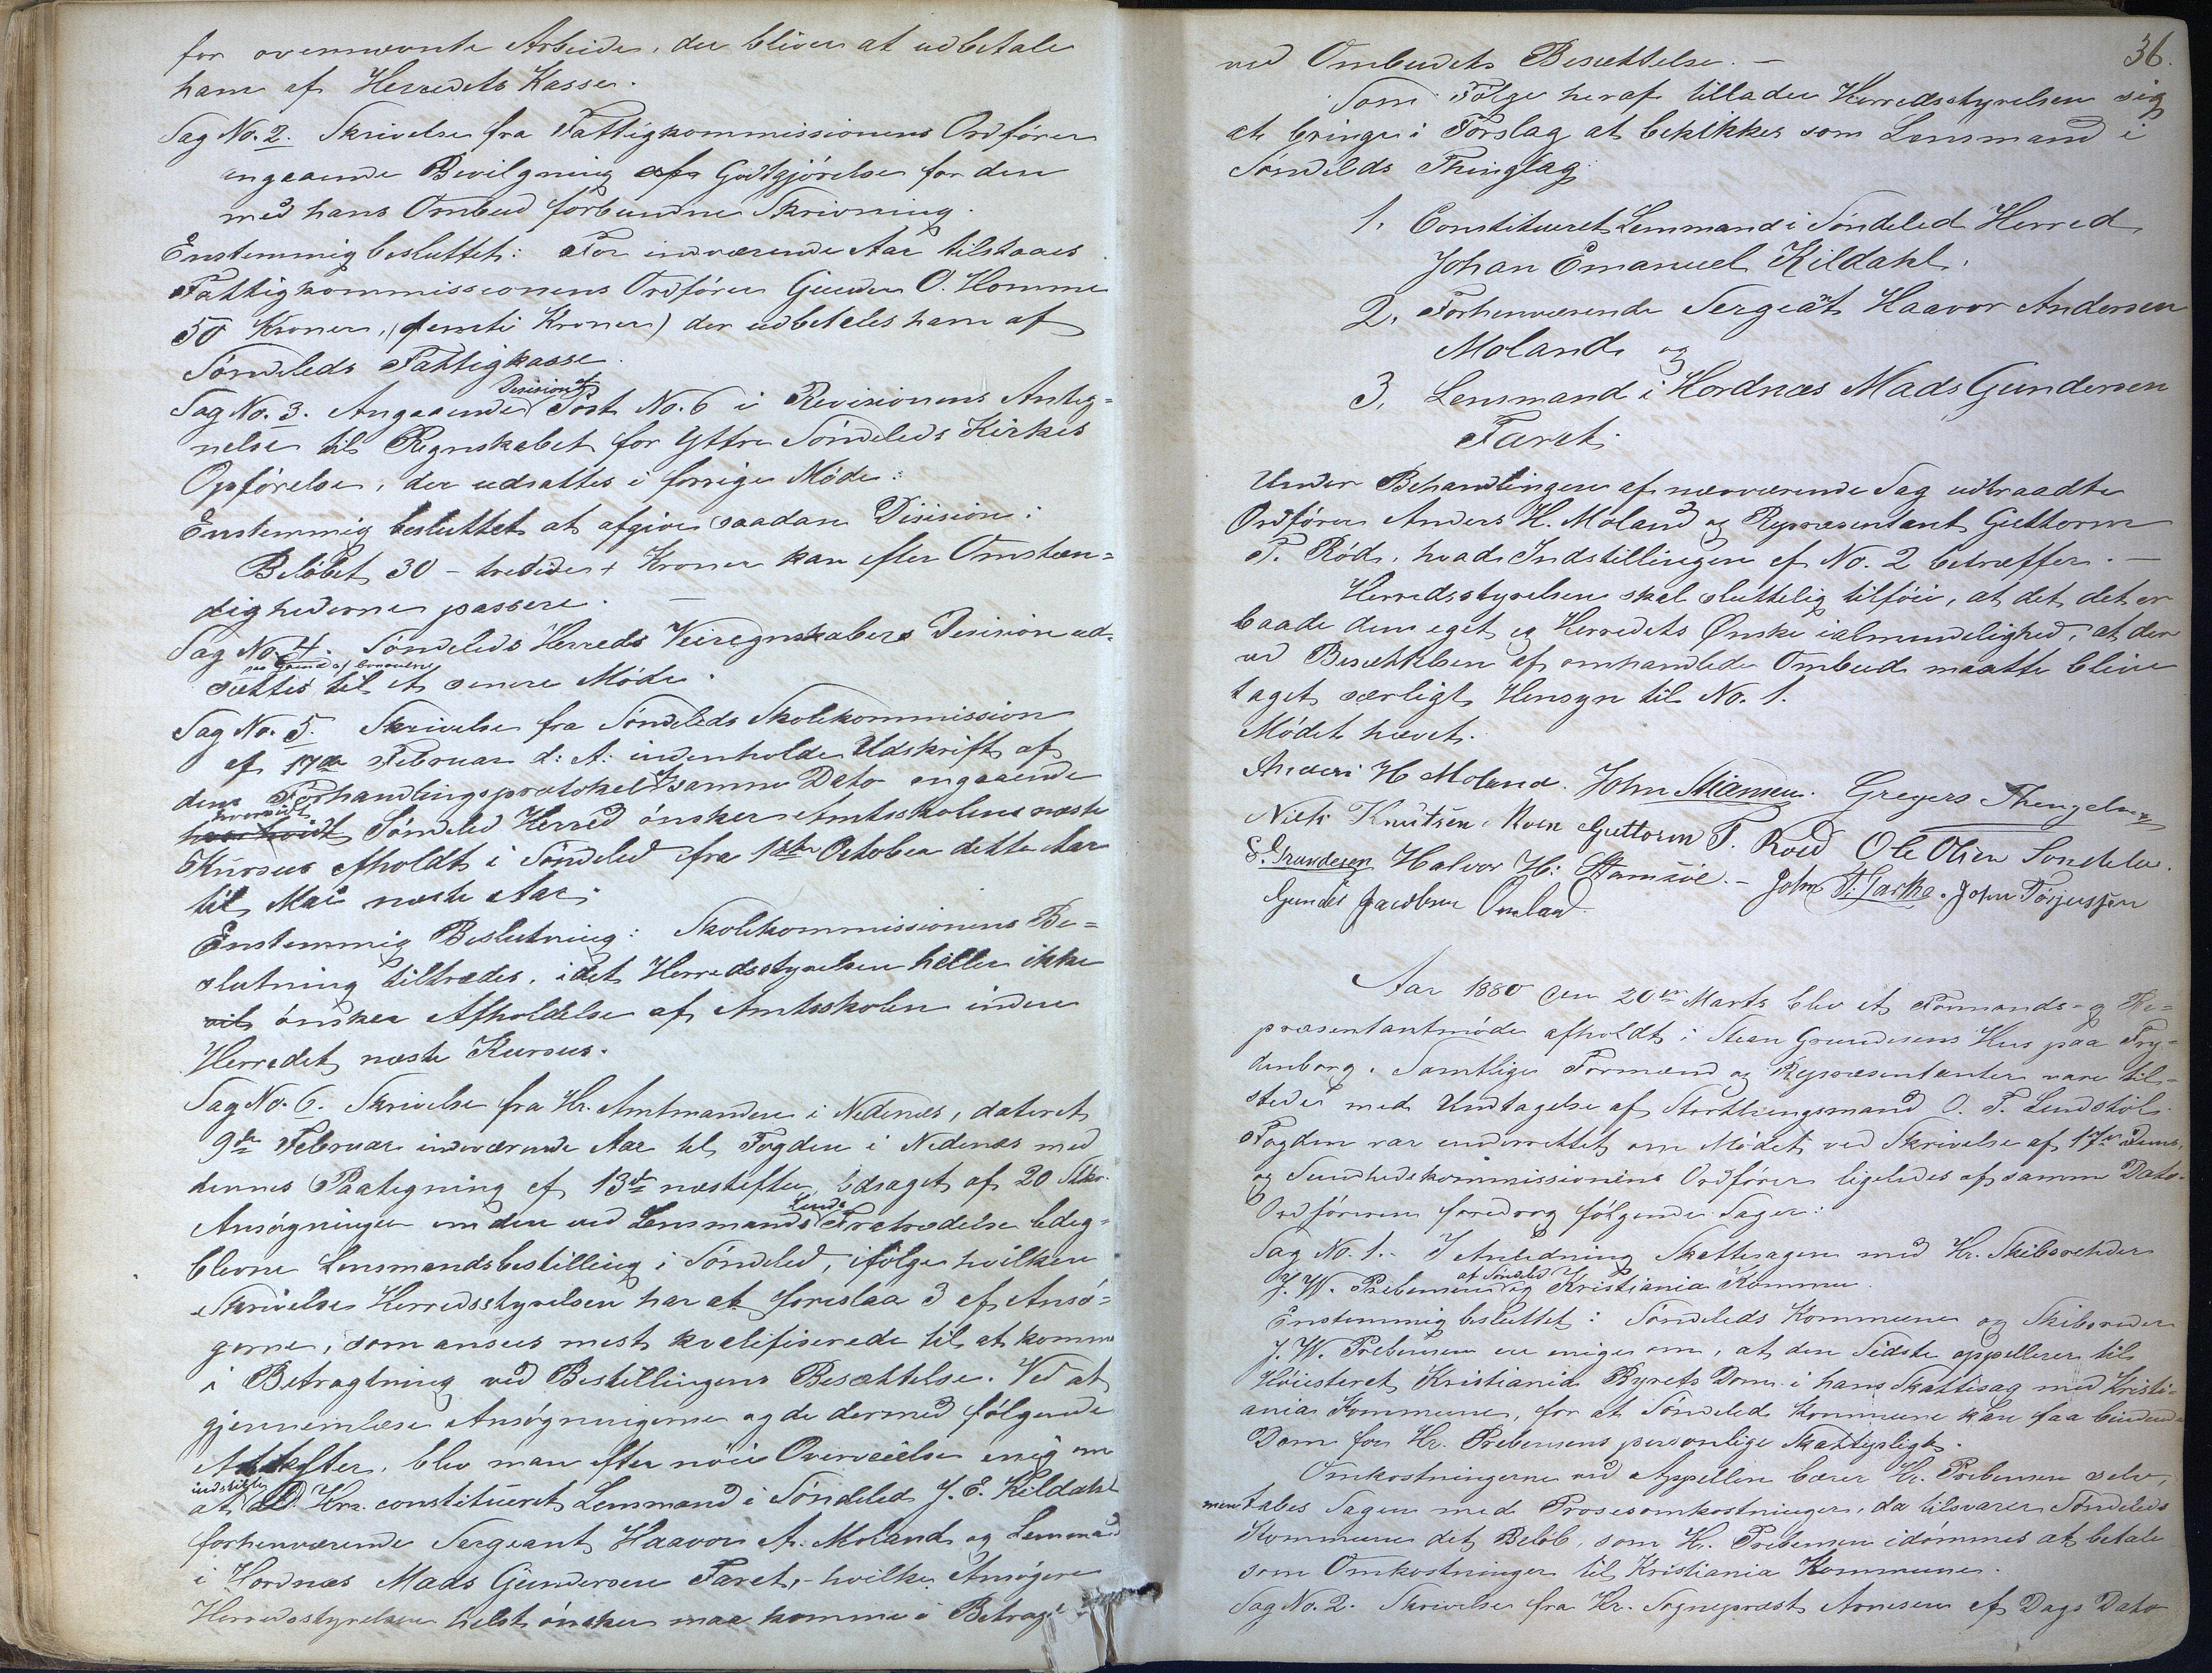 for ovennævnte Arbeide, der bliver at udbetale
ham af Herredets Kasse.
Sag No. 2. Skrivelse fra Fattigkommissionens Ordfører
angaaende Bevilgning af Godtgjørelse for den
med hans Ombud forbundne Skrivning.
Enstemmig besluttet: For indværende Aar tilstaaes
Fattigkommissionens Ordfører Gunder O. Homme
50 Kroner, (femti Kroner) der udbetales ham af
Søndeleds Fattigkasse.
Sag No. 3. Angaaende Desision af Post No. 6 i Revisionens Anteg=
nelse til Regnskabet for Yttre Søndeleds Kirkes
Opførelse, der udsattes i forrige Møde:
Enstemmig besluttet at afgive saadan Disision:
Beløbet 30 - tredive + Kroner kan efter Omstæn=
dighederne passere. —
Sag No. 4. Søndeleds Herreds Veiregnskabers Desision ud-
sættes paa Grund af til et senere Møde.
Sag No. 5. Skrivelse fra Søndeleds Skolekommission
af 17de Februar d: A: indenholder Udskrift af
dens Forhandlingsprotokol af samme Dato angaaende
hvorvidt Søndeled Herred ønsker Amtsskolens næste
Kursus afholdt i Søndeled fra 1ste October dette Aar
til Mai næste Aar.
Enstemmig Beslutning: Skolekommissionens Be=
slutning tiltrædes, idet Herredsstyrelsen heller ikke
vil ønsker Afholdelse af Amtsskolen inden
Herredet næste Kursus.
Sag No. 6. Skrivelse fra Hr. Amtmanden i Nedenes, dateret
9de Februar indeværende Aar til Fogden i Nedenæs med
dennes Paategning af 13de næstefter, ledsaget af 20 Stkr.
Ansøgninger om den ved Lensmand Linds Fratrædelse ledig=
blevne Lensmandsbestilling i Søndeled, ifølge hvilken
Skrivelse Herredsstyrelsen har at foreslaa 3 af Ansø=
gerne, som ansees mest kvalifiserede til at komme
i Betragtning ved Bestillingens Besættelse. Ved at
gjennemlæse Ansøgningerne og de dermed følgende
Attester, blev man efter nøie Overveielse enig om
at indstille Hrr. constitueret Lensmand i Søndeled J. E. Kildahl
forhenværende Sergeant Haavor A. Moland og Lensmand
i Hordnæs Mads Gundersen Faret, - hvilke Ansøgere
Herredsstyrelsen helst ønsker maa komme i Betragt
36.
ved Ombudets Besættelse. —
Som Følge heraf tillader Herredsstyrelsen sig
at bringe i Forslag at beskikkes som Lensmand i
Søndeleds Thinglag:
1. Constitueret Lensmand i Søndeled Herred
Johan Emanuel Kildahl.
2. Forhenværende Sergeant Haavor Andersen
Moland og
3. Lensmand i Hordnæs Mads Gundersen
Faret.
Under Behandlingen af nærværende Sag udtraadte
Ordfører Anders H. Moland og Repræsentant Guttorm
T. Rød, hvad Indstillingen af No. 2 betræffer. —
Herredsstyrelsen skal sluttelig tilføie, at det det er
baade dens eget og Herredets Ønske ialmindelighed, at der
ved Besættelsen af omhandlede Ombud maatte blive
taget særligt Hensyn til No. 1.
Mødet hævet.
Anders H Moland. John Gregers
Niels Knutsen Guttorm T. Roed Ole Olsen Søndeled.
S. Grundesen Halvor H: John T. John Torjussen
Gunder Jacobsen
Aar 1880 den 20de Marts blev et Formands- og Re=
præsentantmøde afholdt i Steen Grundesens Hus paa Fry=
denborg. Samtlige Formænd og Repræsentanter vare til=
stede med Undtagelse af Storthingsmand O. T. Lindstøl.
Fogden var underrettet om Mødet ved Skrivelse af 17de dens,
og Sundhedskommissionens Ordfører ligeledes af samme Dato.
Ordføreren foredrog følgende Sager:
Sag No. 1. - I Anledning Skattesagen med Hr. Skibsreder
J. W. Prebensen af Søndeled og Kristiania Kommune.
Enstemmig besluttet: Søndeleds Kommune og Skibsreder
J. W. Prebensen ere enige om, at den Sidste appellerer til
Høiesteret Kristiania Byrets Dom i hans Skattesag med Kristi=
ania Kommune, for at Søndeled Kommune kan faa bindende
Dom for Hr. Prebensens personlige Skattepligt.
Omkostningerne ved Appellen bærer Hr. Prebensen selv,
men tabes Sagen med Prosesomkostninger, da tilsvarer Søndeleds
Kommune det Beløb, som Hr. Prebensen idømmes at betale
som Omkostninger til Kristiania Kommune.
Sag No. 2. Skrivelse fra Hr. Sognepræst Arnesen af Dags Dato